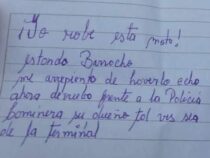 ¡Yo robe esta moto!
estando Borracho
me arepiento de haverlo echo
ahora devuelvo frente a la Policia
bominera su dueño tal ves sea
de la terminal